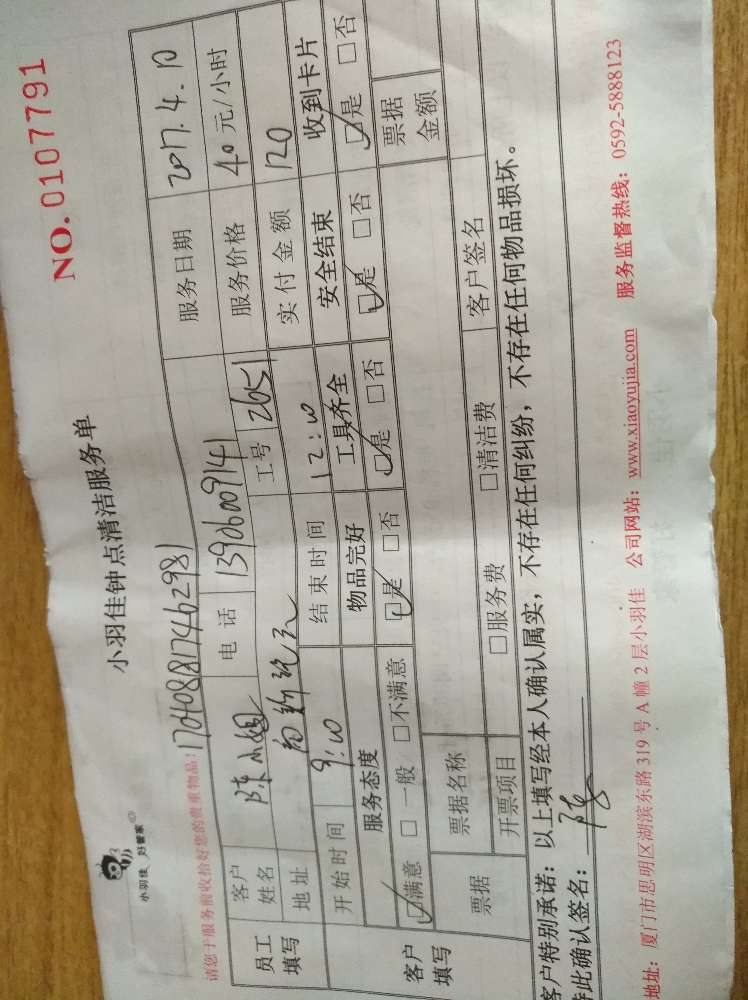 小羽佳 好管家
小羽佳钟点清洁服务单
NO.0107791
请您于服务前收拾好您的贵重物品!
员工填写
客户姓名 陈小姐 电话 13906009141 服务日期 2017.4.10
地址 工号 2651 服务价格 40元/小时
开始时间 9:00 结束时间 12:00 实付金额 120
客户填写
服务态度 物品完好 工具齐全 安全结束 收到卡片
☑满意 □一般 □不满意 ☑是 □否 ☑是 □否 ☑是 □否 ☑是 □否
票据 票据名称 票据金额
开票项目 □服务费 □清洁费 客户签名
客户特别承诺:以上填写经本人确认属实,不存在任何纠纷,不存在任何物品损坏。
特此确认签名:
地址:厦门市思明区湖滨东路319号A幢2层小羽佳 公司网站:www.xiaoyujia.com 服务监督热线:0592-5888123